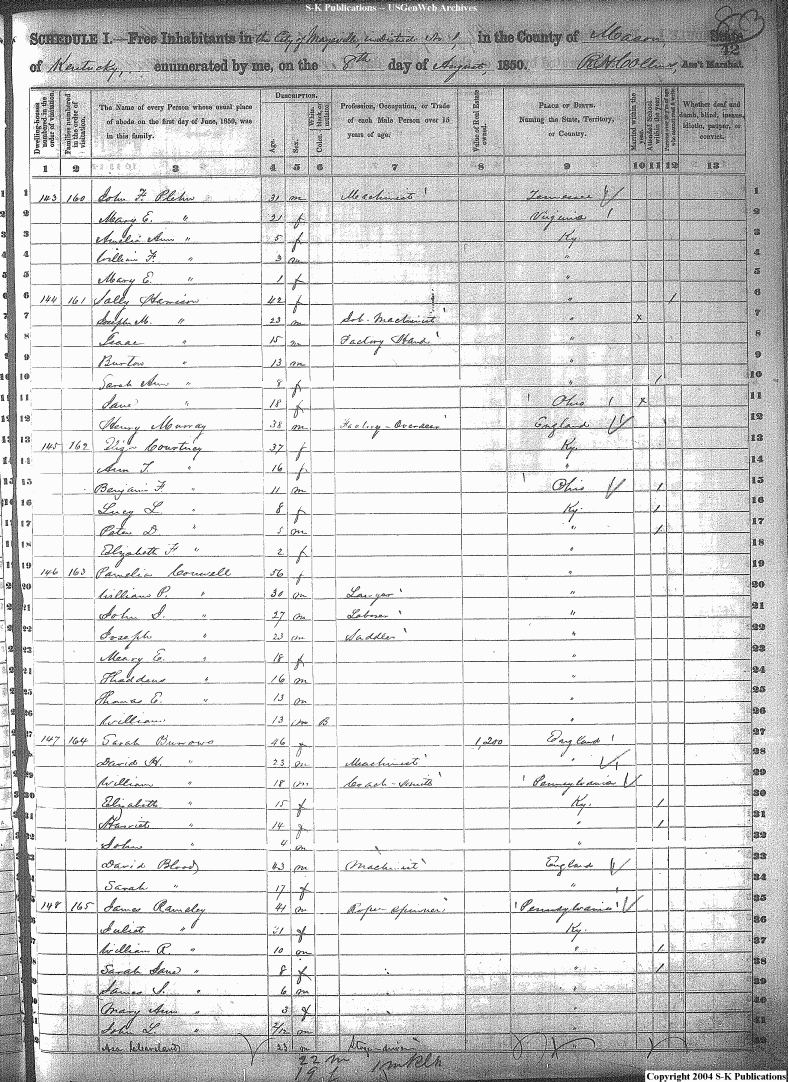 S-K Publications -- USGenWeb Archives
SCHEDULE I.—Free Inhabitants in the City of Maysville, in the County of Mason, State
42
of Kentucky, enumerated by me, on the 8th day of August, 1850. Ass't Marshal.
DESCRIPTION.
Dwelling-houses numbered in the order of visitation.
Families numbered in the order of visitation.
The Name of every Person whose usual place of abode on the first day of June, 1850, was in this family.
Age.
Sex.
Profession, Occupation, or Trade of each Male Person over 15 years of age.
Value of Real Estate owned.
PLACE OF BIRTH. Naming the State, Territory, or Country.
Married within the year.
Attended School within the year.
Whether deaf and dumb, blind, insane, idiotic, pauper, or convict.
1 2 3 4 5 6 7 8 9 10 11 12 13
1 143 160 John F. 31 m Machinist Tennessee 1
2 Mary E. " 21 f Virginia 2
3 Amelia Ann " 5 f Ky. 3
4 William F. " 3 m " 4
5 Mary E. " 1 f " 5
6 144 161 Sally Harrison 42 f " / 6
7 Joseph M. " 23 m Machinist " x 7
8 Isaac " 15 m Factory Hand " 8
9 Burton " 13 m " 9
10 Sarah Ann " 8 f " / 10
11 Jane " 18 f Ohio x 11
12 Henry Murray 38 m Factory-Overseer England 12
13 145 162 Courtney 37 f Ky. 13
14 Ann T. " 16 f " 14
15 Benjamin F. " 11 m Ohio / 15
16 Lucy L. " 8 f Ky. / 16
17 Peter D. " 5 m " / 17
18 Elizabeth F " 2 f " 18
19 146 163 Pamelia Cornwell 56 f " 19
20 William P. " 30 m " 20
21 John " 27 m Laborer " 21
22 Joseph " 23 m Saddler " 22
23 Mary E. " 18 f " 23
24 Thaddeus " 16 m " 24
25 Thomas E. " 13 m " 25
26 William 13 m B " 26
27 147 164 Sarah Burrows 46 f 1,200 England 27
28 David H. " 23 m Machinist " 28
29 William " 18 m Coach-Smith Pennsylvania 29
30 Elizabeth " 15 f Ky. / 30
31 Harriet " 14 f " / 31
32 John " 4 m " 32
33 David Blood 43 m Machinist England 33
Sarah " 17 f "
35 148 165 James Rameley 41 m Rope-spinner Pennsylvania 35
36 Juliet " 31 f Ky. 36
37 William R. " 10 m " / 37
38 Sarah Jane " 8 f " / 38
39 James " 6 m " 39
40 Mary Ann " 3 f " 40
41 John L. " m " 41
Asa 23 m Stage-driver
22 m
19 f
Copyright 2004 S-K Publications